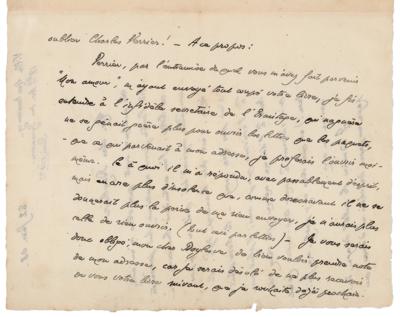 oublier Charles Perrier! — A ce propos:
Perrier, par l'entremise de qui vous m'aviez fait parvenir
"Mon amour", m'ayant envoyé tout coupé votre livre, je fis
entendre à l'infidèle secrétaire de l'Ermitage, qui naguère
ne se gênait guère plus pour ouvrir les lettres que les paquets,
que ce qui parvenait à mon adresse, je préférais l'ouvrir moi-
même. Là à quoi il m'a répondu, avec passablement d'esprit,
mais encore plus d'insolence que, comme dorénavant il ne se
donnerait plus la peine de me rien envoyer, je n'aurais plus
celle de rien ouvrir. (tout ceci par lettres) — Je vous serais
donc obligé, mon cher de bien vouloir prendre note
de mon adresse, car je serais désolé de ne plus recevoir
de vous votre livre suivant, que je souhaite déjà prochain.